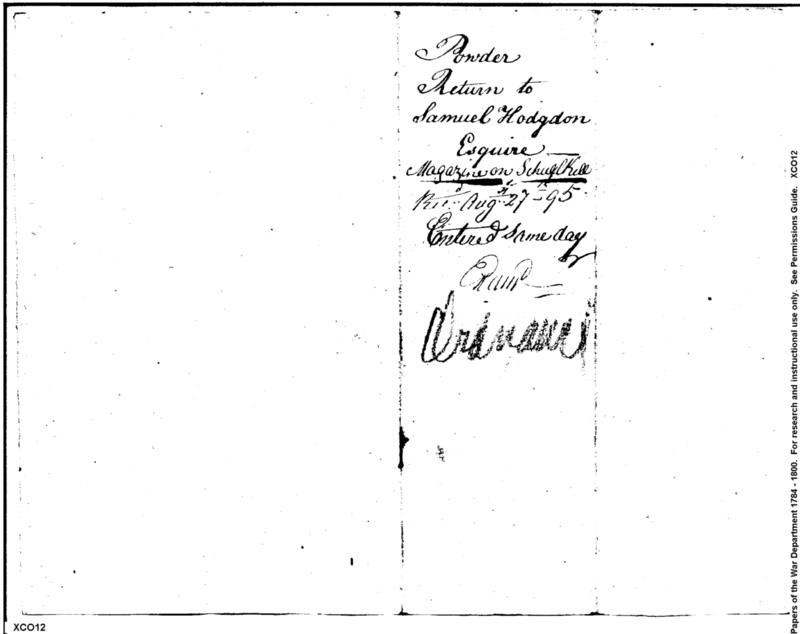 Powder
Return to
Samuel Hodgdon
Esquire
Magazine on Schuylkill
Rec.d Augst 27th 95
Entered Same day
Exam.d
Ordnance
XCO12
Papers of the War Department 1784 - 1800. For research and instructional use only. See Permissions Guide. XCO12